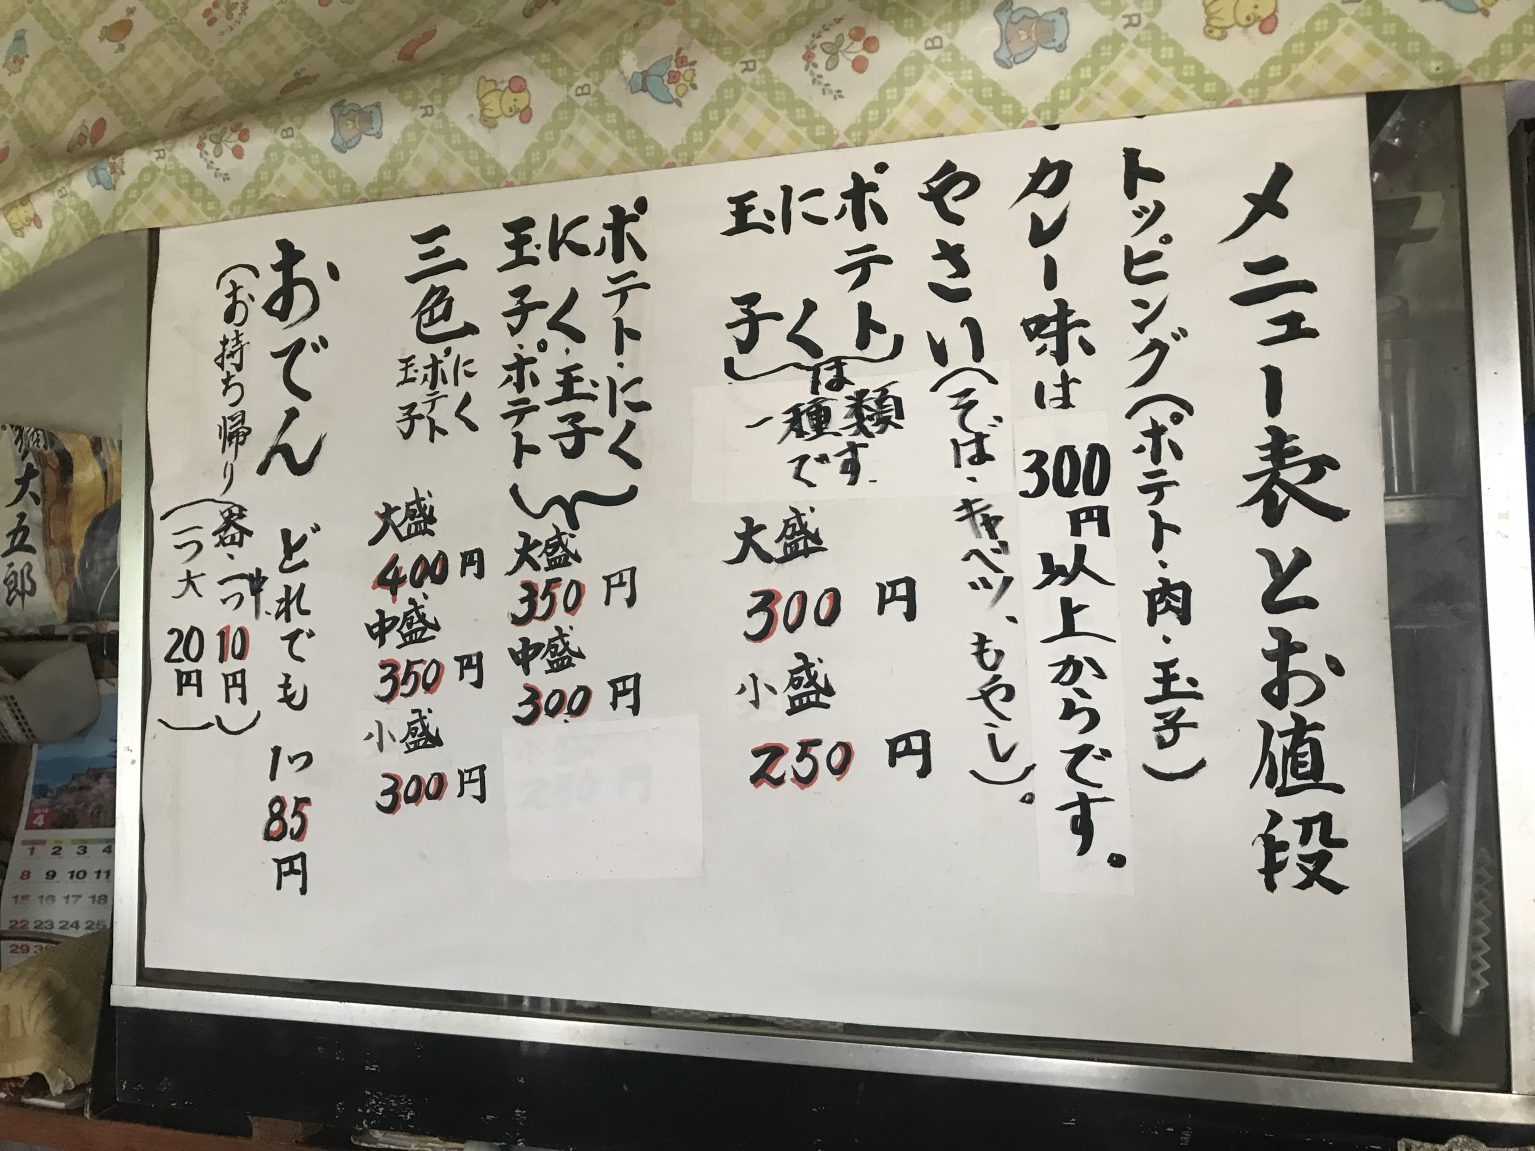 メニュー表とお値段
トッピング(ポテト・肉・玉子)
カレー味は300円以上からです。
やさい(そば・キャベツ、もやし)。
ポテト
にく
玉子
は一種類です
大盛300円
小盛250円
ポテト・にく
にく・玉子
玉子・ポテト
大盛350円
中盛300円
三色
にく
ポテト
玉子
大盛400円
中盛350円
小盛300円
おでん どれでも 1つ85円
(お持ち帰り(器・一つ中10円)
(一つ大20円)
大五郎
4
1 2 3 4
8 9 10 11
15 16 17 18
22 23 24 25
29
B R